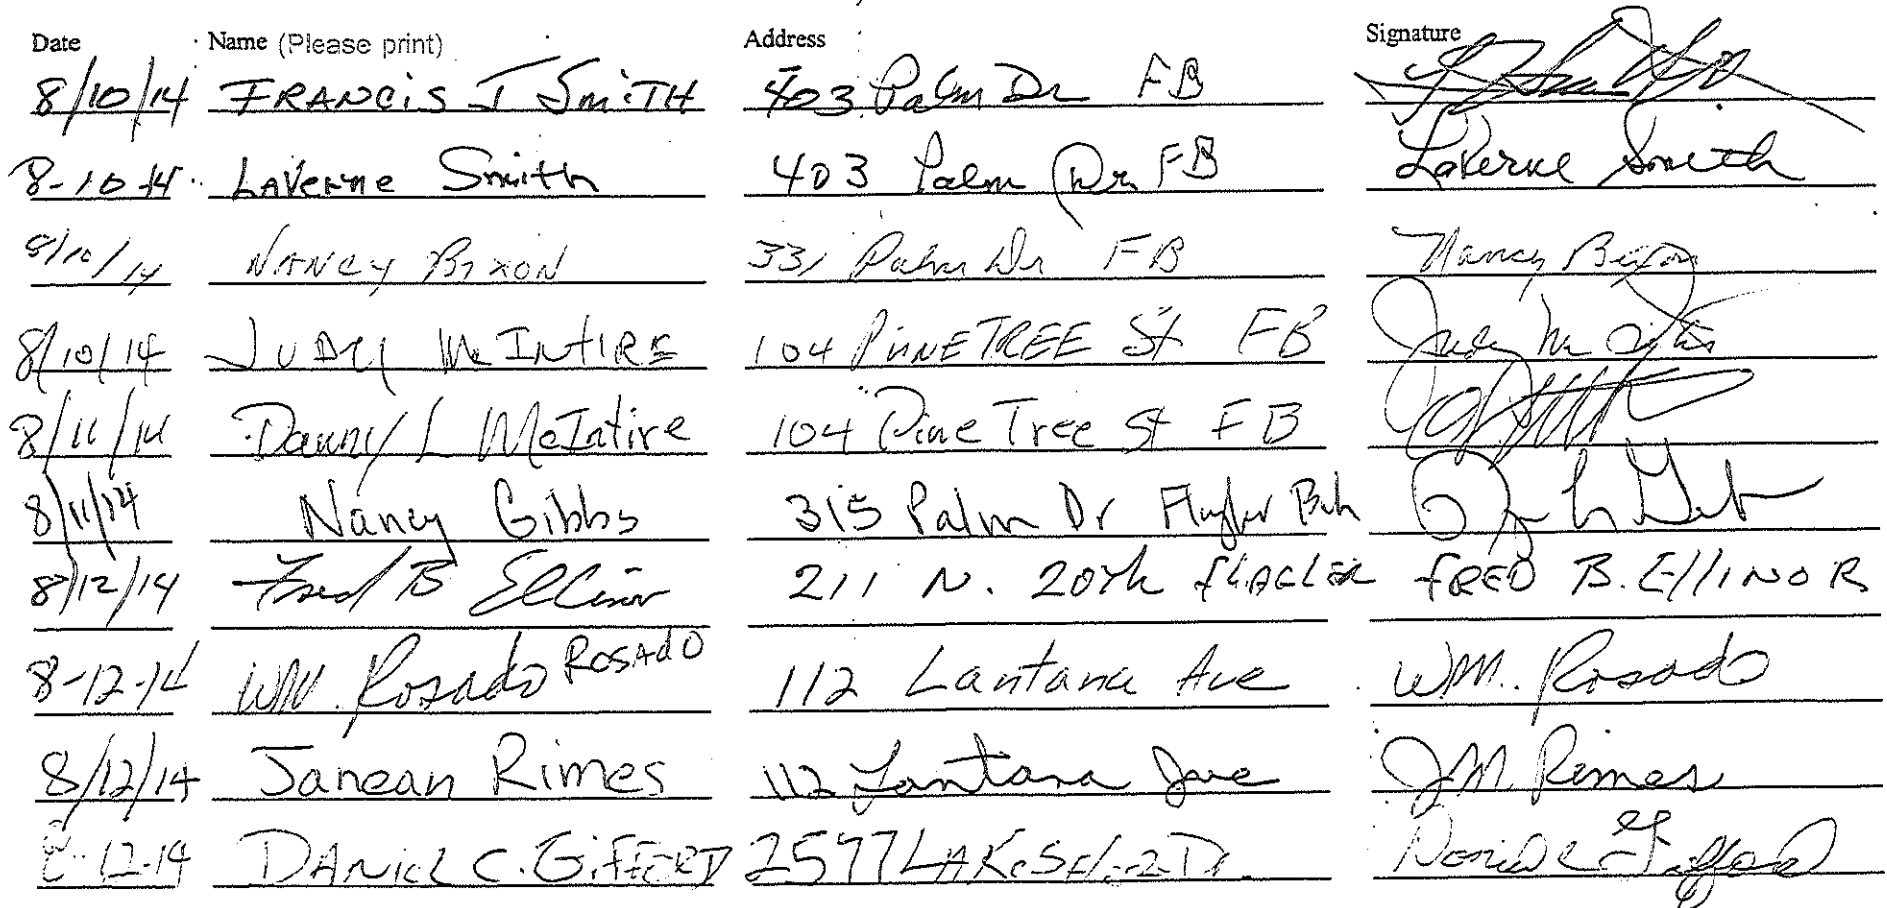 Date Name (Please print) Address Signature
8/10/14 FRANCIS J SmiTH 403 Palm Dr FB
8-10-14 LaVerne Smith 403 Palm Dr. FB LaVerne Smith
8/10/14 NANCY BIXON 331 Palm Dr FB Nancy Bixon
8/10/14 JUDY McINTIRE 104 PINETREE St FB Judy McIntire
8/11/14 Danny L McIntire 104 Pine Tree St FB
8/11/14 Nancy Gibbs 315 Palm Dr Flagler Bch
8/12/14 Fred B Ellinor 211 N. 20th fLAGLER fRED B. EllINOR
8-12-14 WM. Rosado ROSAdO 112 Lantana Ave WM. Rosado
8/12/14 Janean Rimes 112 Lantana Ave J.M. Rimes
8-12-14 DANiEL C. GiFFORD 2577 LAKeSHore Dr. Daniel C Gifford